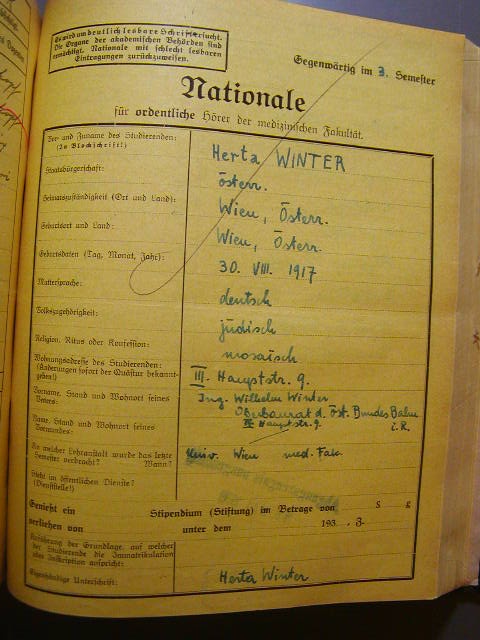 Es wird um deutlich lesbare Schrift ersucht.
Die Organe der akademischen Behörden sind
ermächtigt, Nationale mit schlecht lesbaren
Eintragungen zurückzuweisen.
Gegenwärtig im 3. Semester
Nationale
für ordentliche Hörer der medizinischen Fakultät.
Vor- und Zuname des Studierenden:
(In Blockschrift!)
Herta WINTER
Staatsbürgerschaft:
österr.
Heimatzuständigkeit (Ort und Land):
Wien, Österr.
Geburtsort und Land:
Wien, Österr.
Geburtsdaten (Tag, Monat, Jahr):
30. VIII. 1917
Muttersprache:
deutsch
Volkszugehörigkeit:
jüdisch
Religion, Ritus oder Konfession:
mosaisch
Wohnungsadresse des Studierenden:
(Änderungen sofort der Quästur bekannt-
geben!)
III. Hauptstr. 9.
Vorname, Stand und Wohnort seines
Vaters:
Ing. Wilhelm Winter
Oberbaurat d. öst. Bundes Bahn
i. R.
III Hauptstr. 9.
Name, Stand und Wohnort seines
Vormundes:
An welcher Lehranstalt wurde das letzte
Semester verbracht? Wann?
Univ. Wien med. Fak.
Steht im öffentlichen Dienste?
(Dienststelle!)
Genießt ein Stipendium (Stiftung) im Betrage von S g
verliehen von unter dem 193 , Z.
Anführung der Grundlage, auf welcher
der Studierende die Immatrikulation
oder Inskription anspricht:
Eigenhändige Unterschrift:
Herta Winter